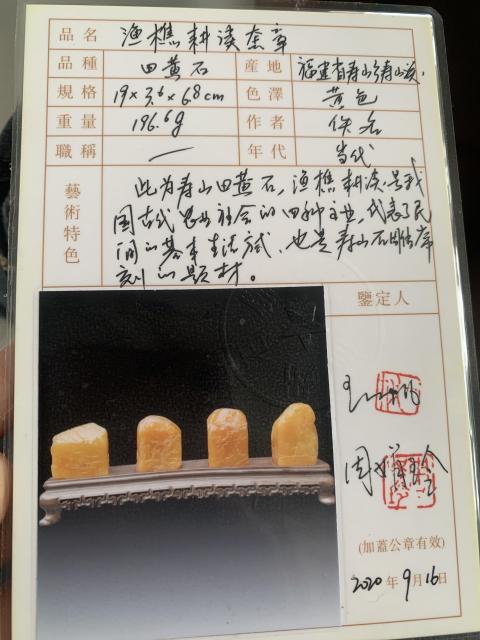 品名 渔樵耕读套章
品種 田黄石 産地 福建省寿山乡寿山溪
規格 19×3.6×6.8cm 色澤 黄色
重量 196.6g 作者 佚名
職稱 一 年代 当代
藝術特色
此为寿山田黄石，渔樵耕读是我
国古代农业社会的四种主业，代表了民
间的基本生活方式，也是寿山石雕传席
刻的题材。
鑒定人
周
(加蓋公章有效)
2020年9月16日